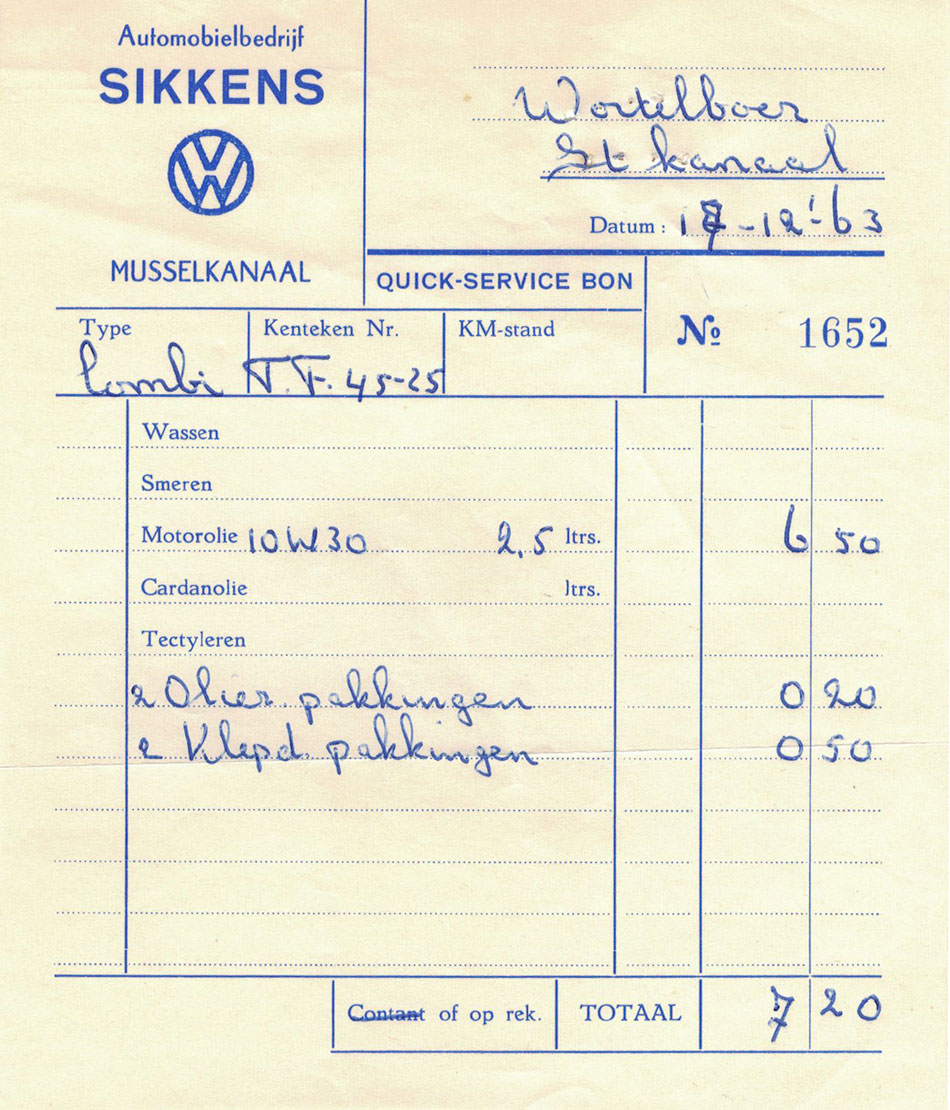 Automobielbedrijf
SIKKENS
VW
MUSSELKANAAL
Wortelboer
St kanaal
Datum: 17-12-'63
QUICK-SERVICE BON
№ 1652
Type Kenteken Nr. KM-stand
Combi T.F. 45-25
Wassen
Smeren
Motorolie 10W30 2,5 ltrs. 6 50
Cardanolie ltrs.
Tectyleren
2 Olier. pakkingen 0 20
2 Klepd. pakkingen 0 50
Contant of op rek. TOTAAL 7 20